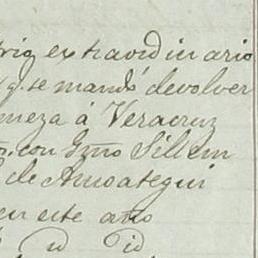 extravidinario
q. se mandó devolver
á Veracruz
con Gmo Sillem
de Amoategui
en este año
id id